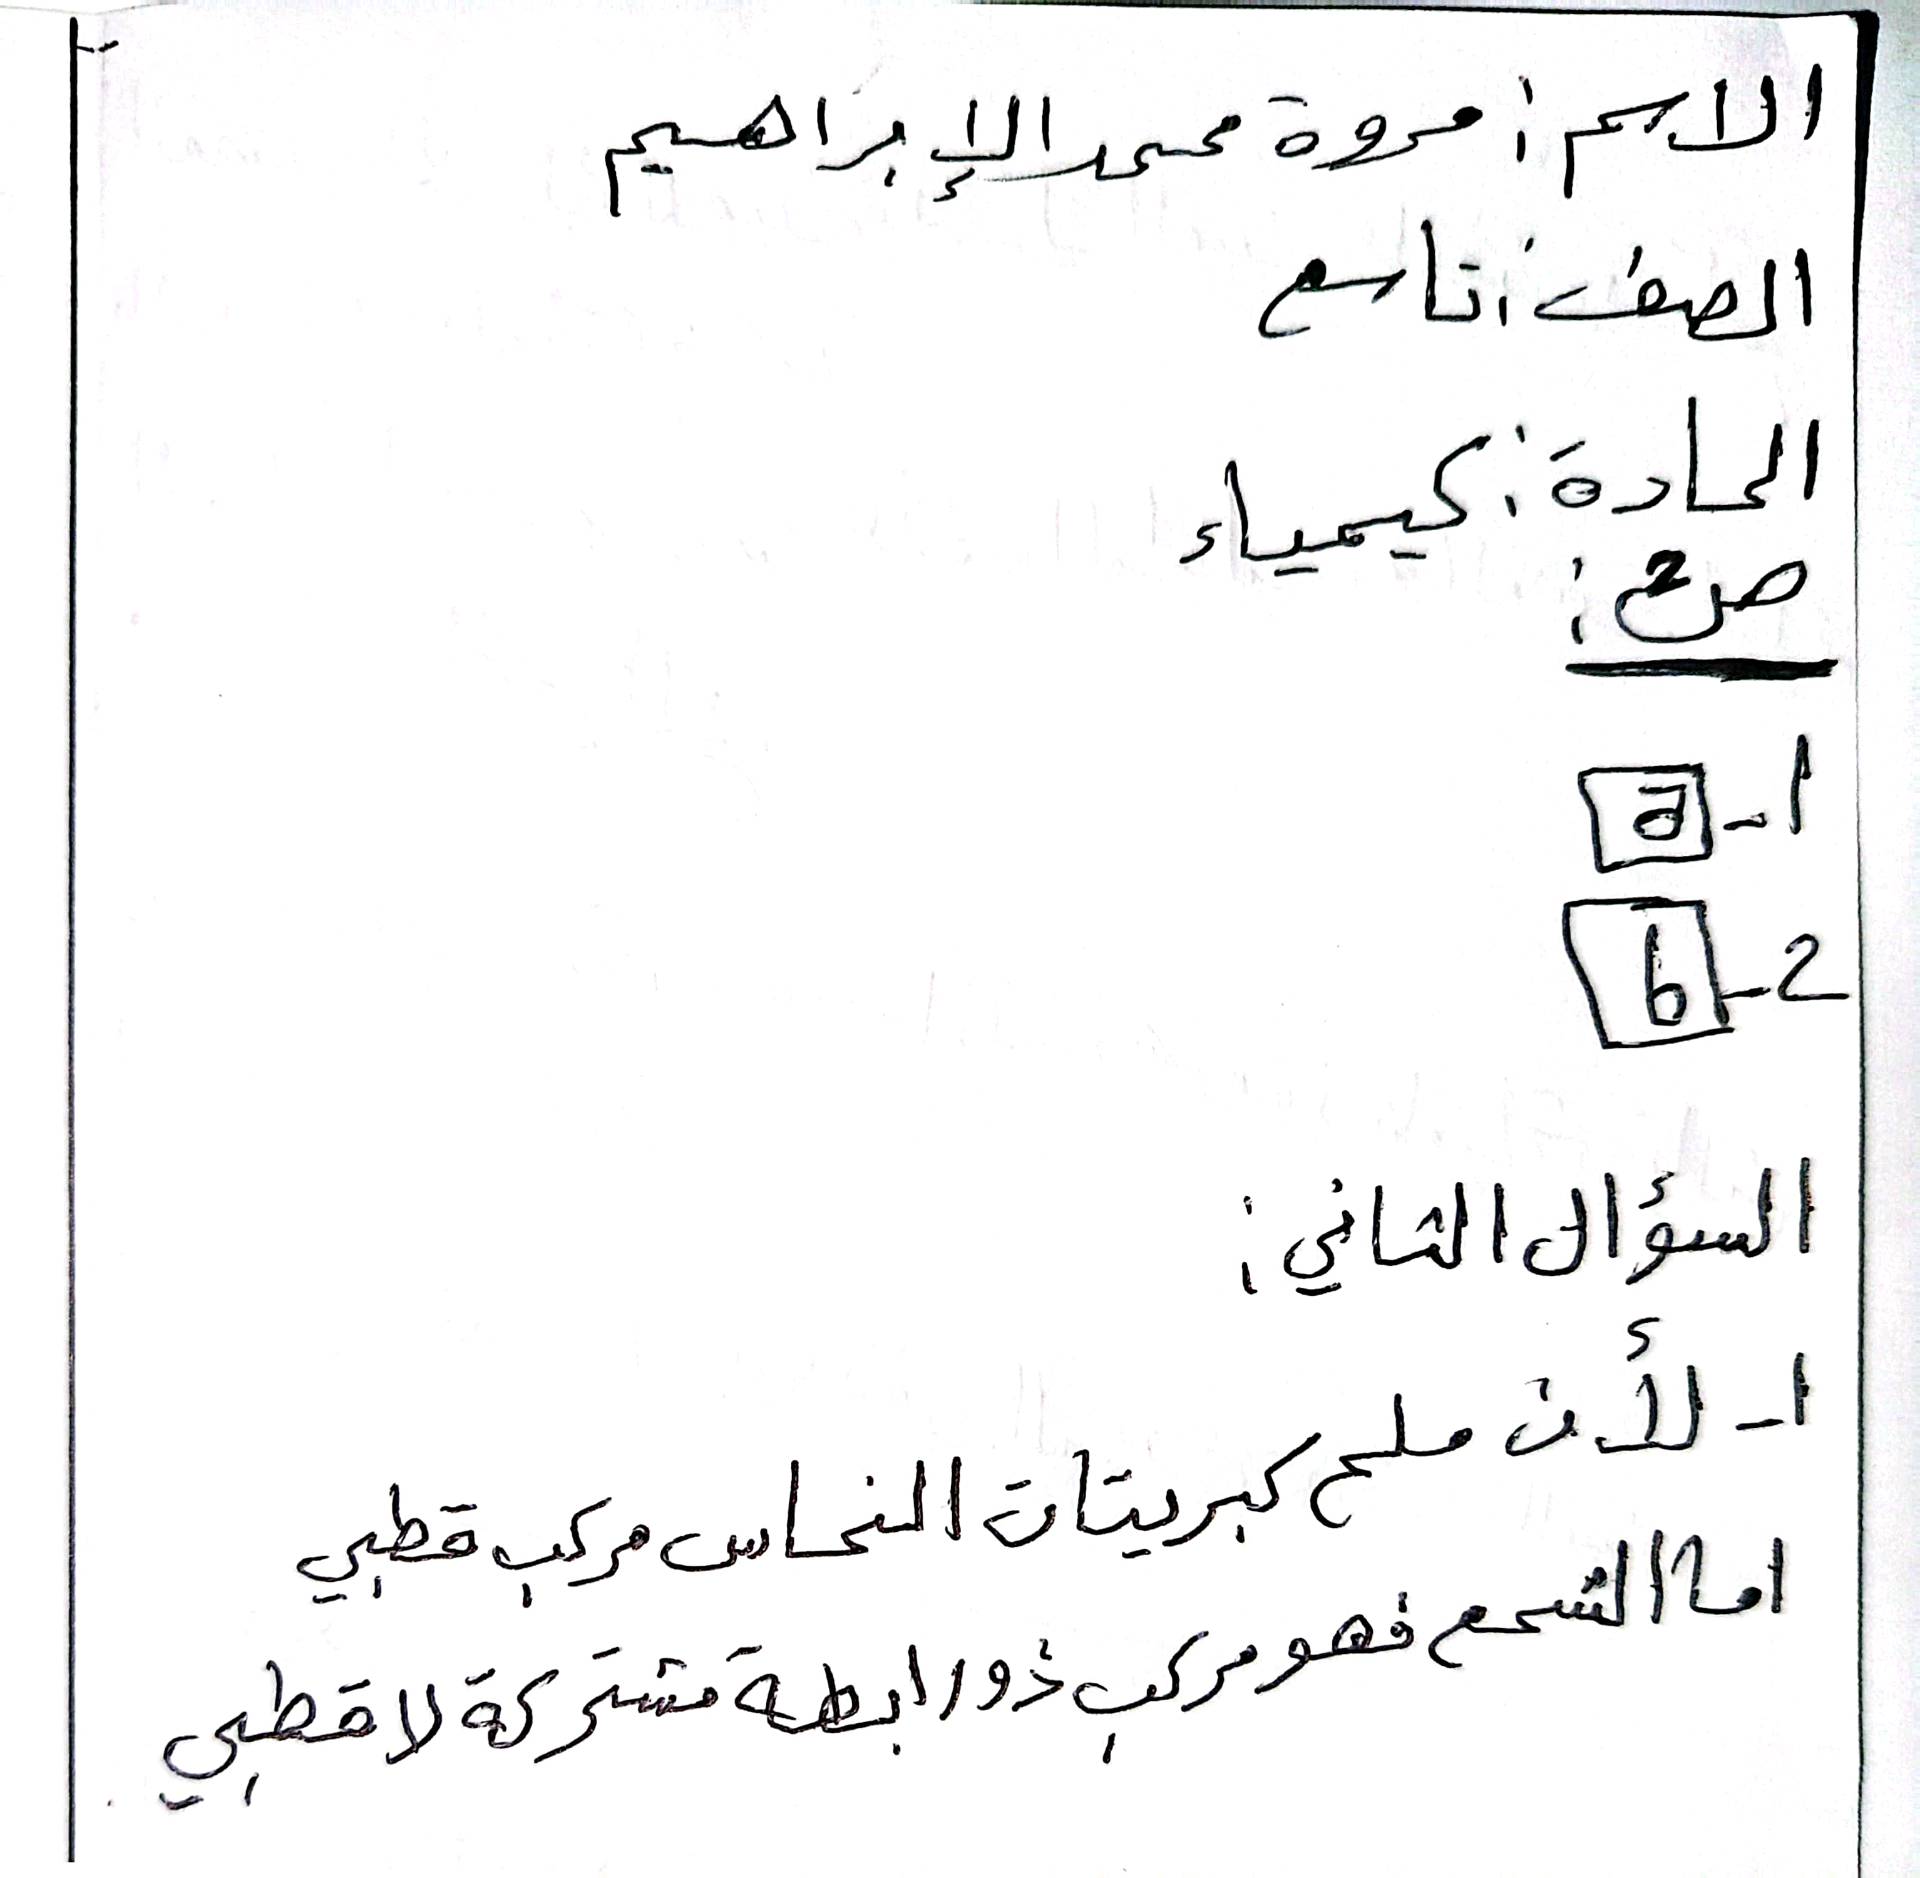 الاسم : مروة محمد الإبراهيم
الصف : تاسع
المادة : كيمياء
ص2 :
1- a
2- b
السؤال الثاني :
1- لأن ملح كبريتات النحاس مركب قطبي
اما الشمع فهو مركب ذو رابطة مشتركة لا قطبي